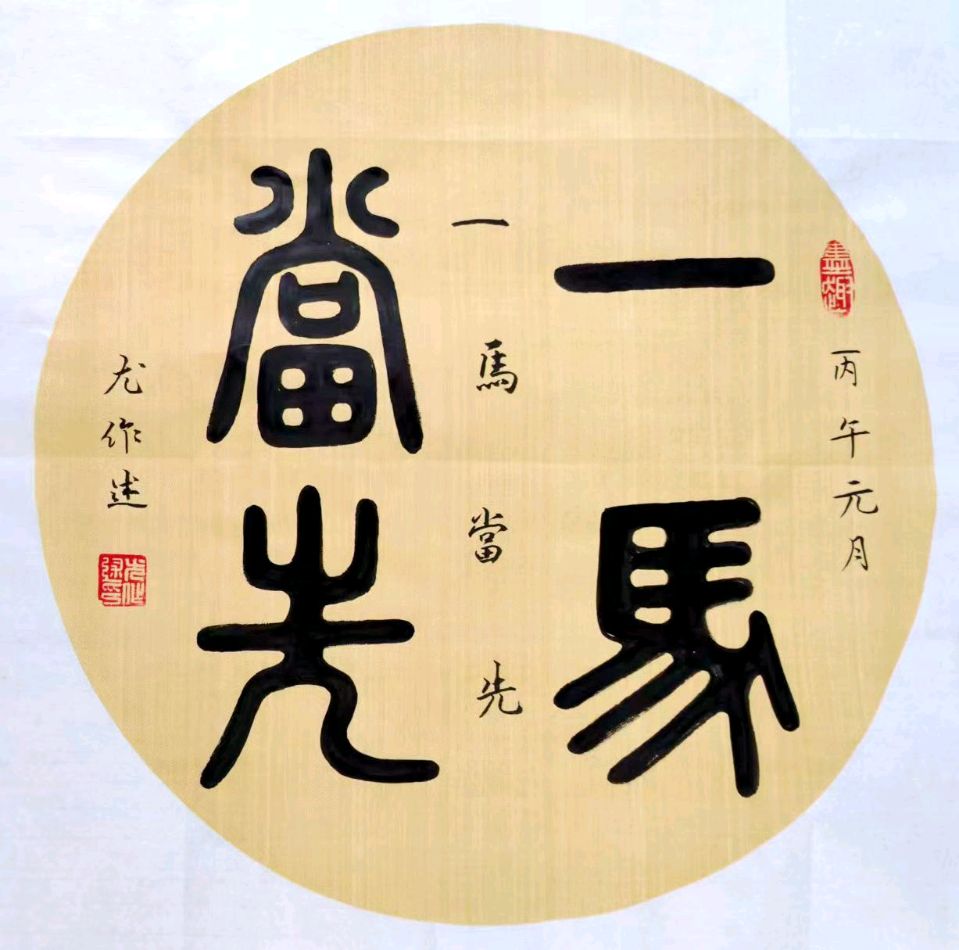 墨趣
丙午元月
一馬
一馬當先
當先
尤作述